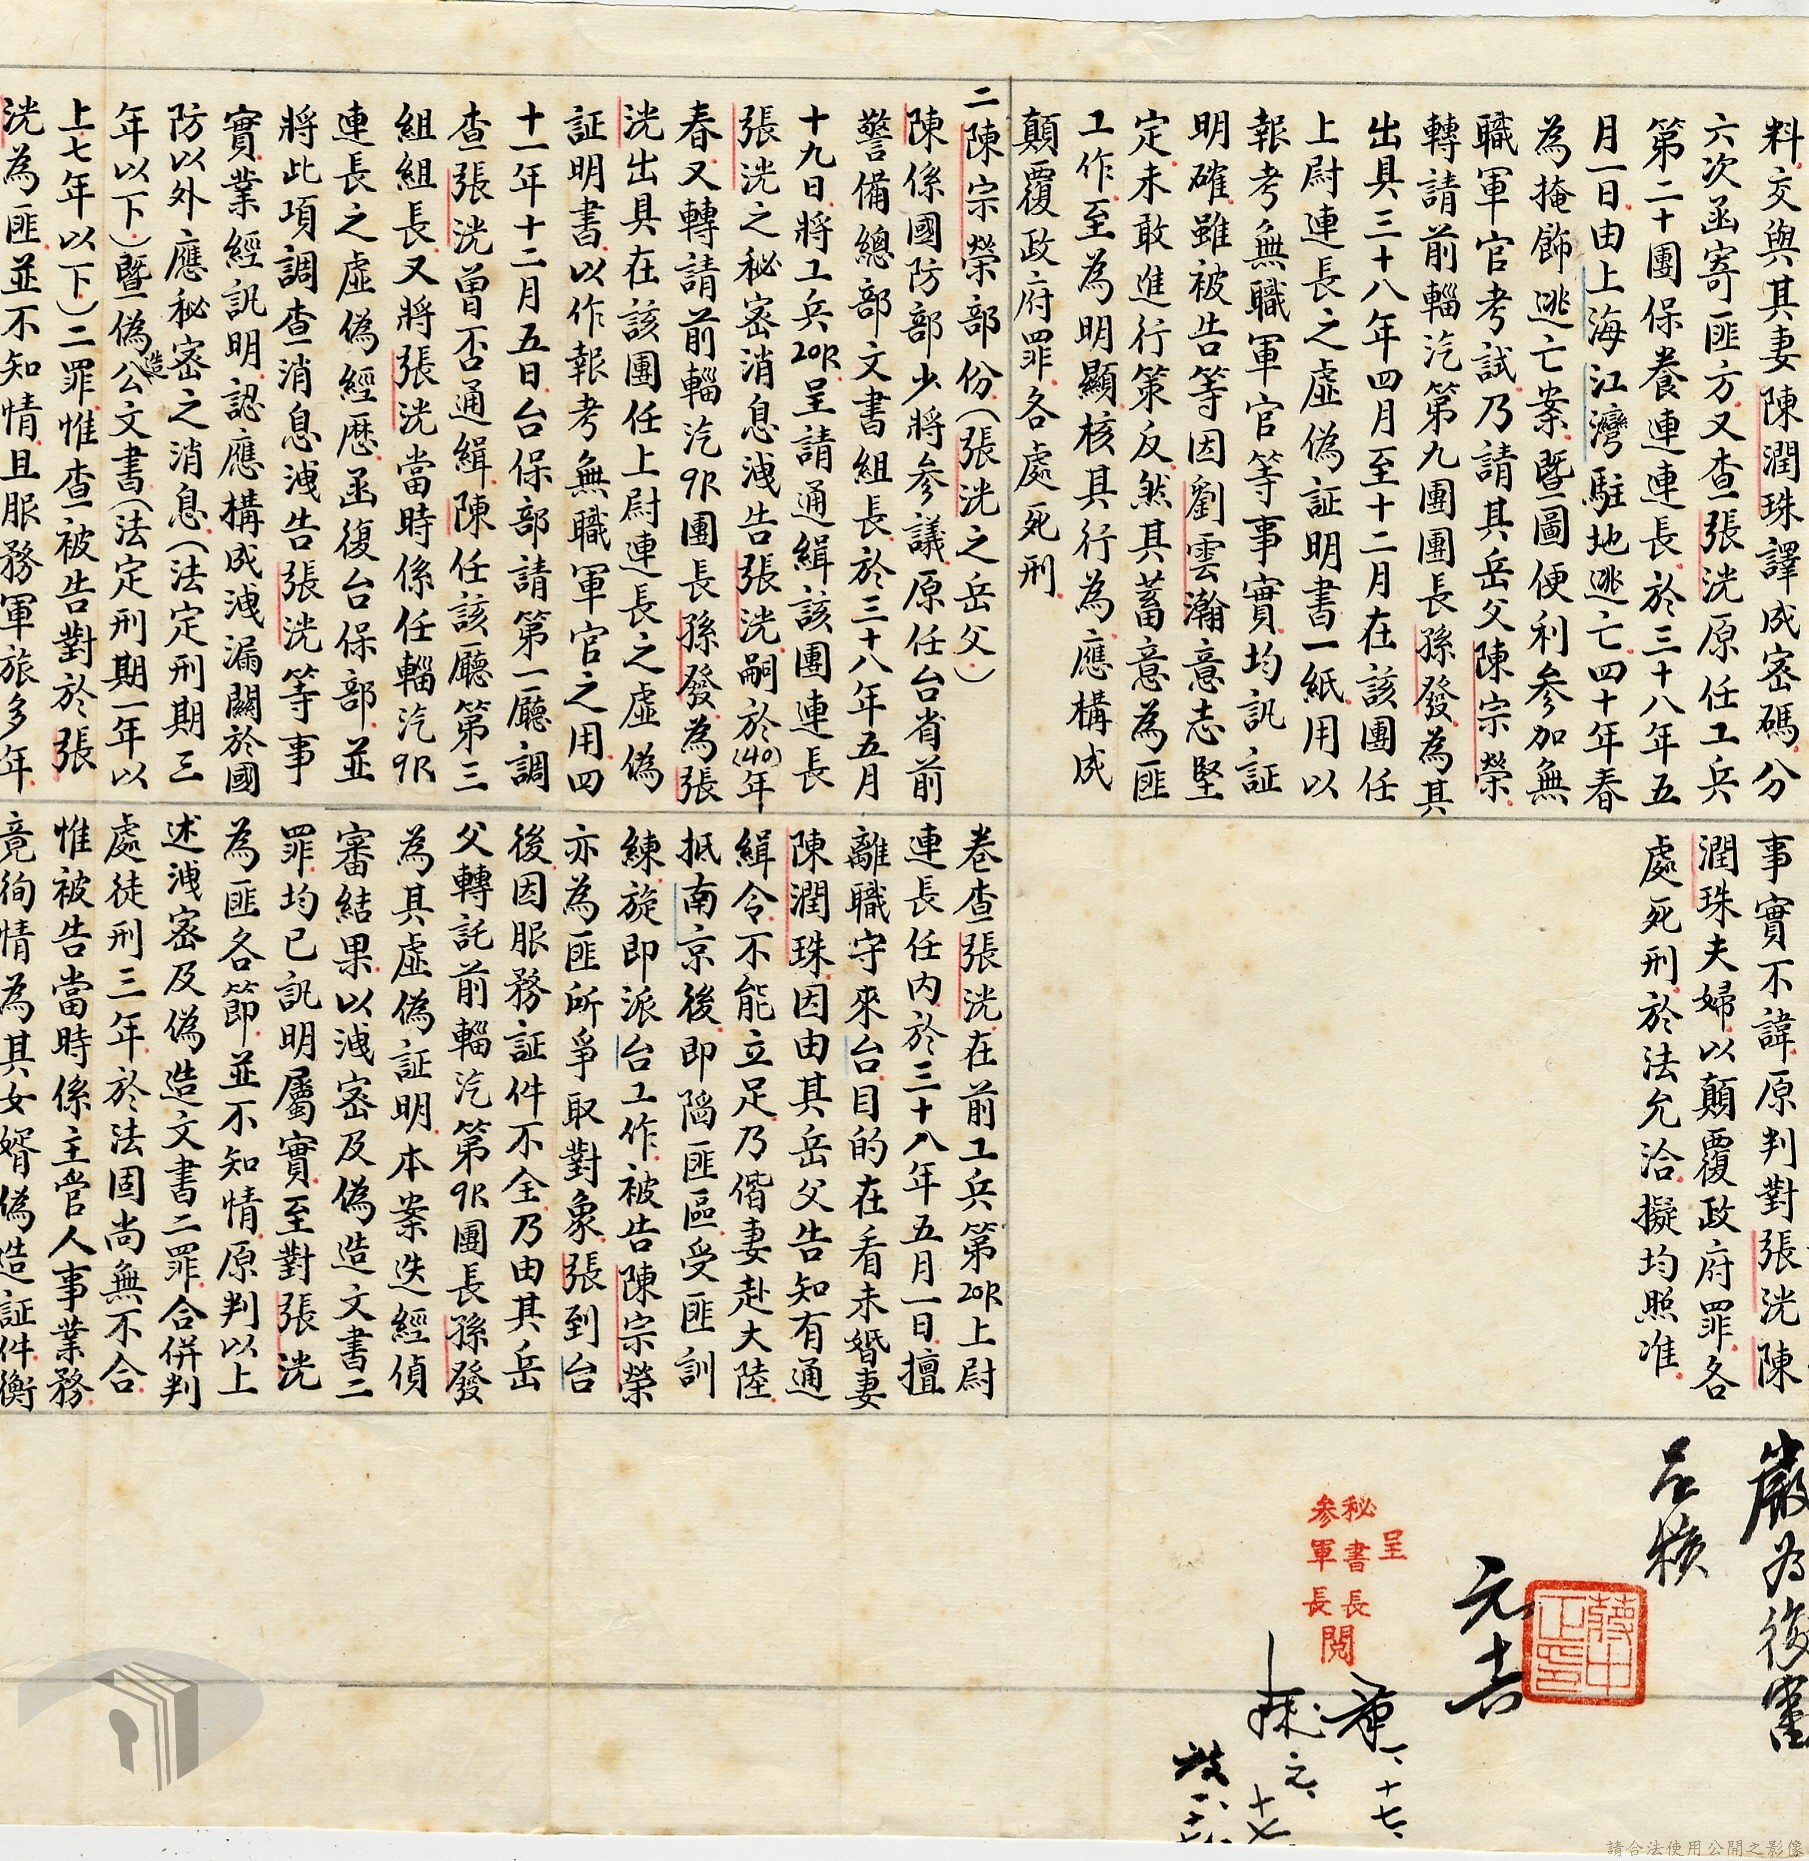 料.交與其妻陳潤珠譯成密碼.分
六次函寄匪方.又查張洸原任工兵
第二十團保養連連長.於三十八年五
月一日由上海江灣駐地逃亡.四十年春
為掩飾逃亡案.暨圖便利參加無
職軍官考試.乃請其岳父陳宗榮.
轉請前輜汽第九團團長孫發.為其
出具三十八年四月至十二月在該團任
上尉連長之虛偽証明書一紙.用以
報考無職軍官等事實.均訊証
明確.雖被告等因劉雲瀚意志堅
定.未敢進行策反.然其蓄意為匪
工作.至為明顯.核其行為.應構成
顛覆政府罪.各處死刑.
二陳宗榮部份.(張洸之岳父)
陳係國防部少將參議.原任台省前
警備總部文書組長.於三十八年五月
十九日.將工兵20R.呈請通緝該團連長
張洸之秘密消息.洩告張洸.嗣於(40)年
春.又轉請前輜汽9R團長孫發.為張
洸出具在該團任上尉連長之虛偽
証明書.以作報考無職軍官之用.四
十一年十二月五日.台保部請第一廳調
查張洸曾否通緝.陳任該廳第三
組組長.又將張洸當時係任輜汽9R
連長之虛偽經歷.函復台保部.並
將此項調查消息.洩告張洸等事
實.業經訊明.認應構成洩漏關於國
防以外應秘密之消息(法定刑期三
年以下)暨偽造公文書(法定刑期一年以
上七年以下)二罪.惟查被告對於張
洸為匪.並不知情.且服務軍旅多年.
事實不諱.原判對張洸陳
潤珠夫婦.以顛覆政府罪.各
處死刑.於法允洽.擬均照准.
卷查張洸在前工兵第20R上尉
連長任內.於三十八年五月一日.擅
離職守來台.目的在看未婚妻
陳潤珠.因由其岳父告知有通
緝令.不能立足.乃偕妻赴大陸.
抵南京後.即陷匪區.受匪訓
練.旋即派台工作.被告陳宗榮
亦為匪所爭取對象.張到台
後.因服務証件不全.乃由其岳
父轉託前輜汽第9R團長孫發
為其虛偽証明.本案迭經偵
審結果.以洩密及偽造文書二
罪.均已訊明屬實.至對張洸
為匪各節.並不知情.原判以上
述洩密及偽造文書二罪.合併判
處徒刑三年.於法固尚無不合.
惟被告當時係主管人事業務.
竟徇情為其女婿偽造証件.衡
嚴為復審
呈核
元吉
呈
秘書長
參軍長
閱
一、十七、
元、
十七
請合法使用公開之影像